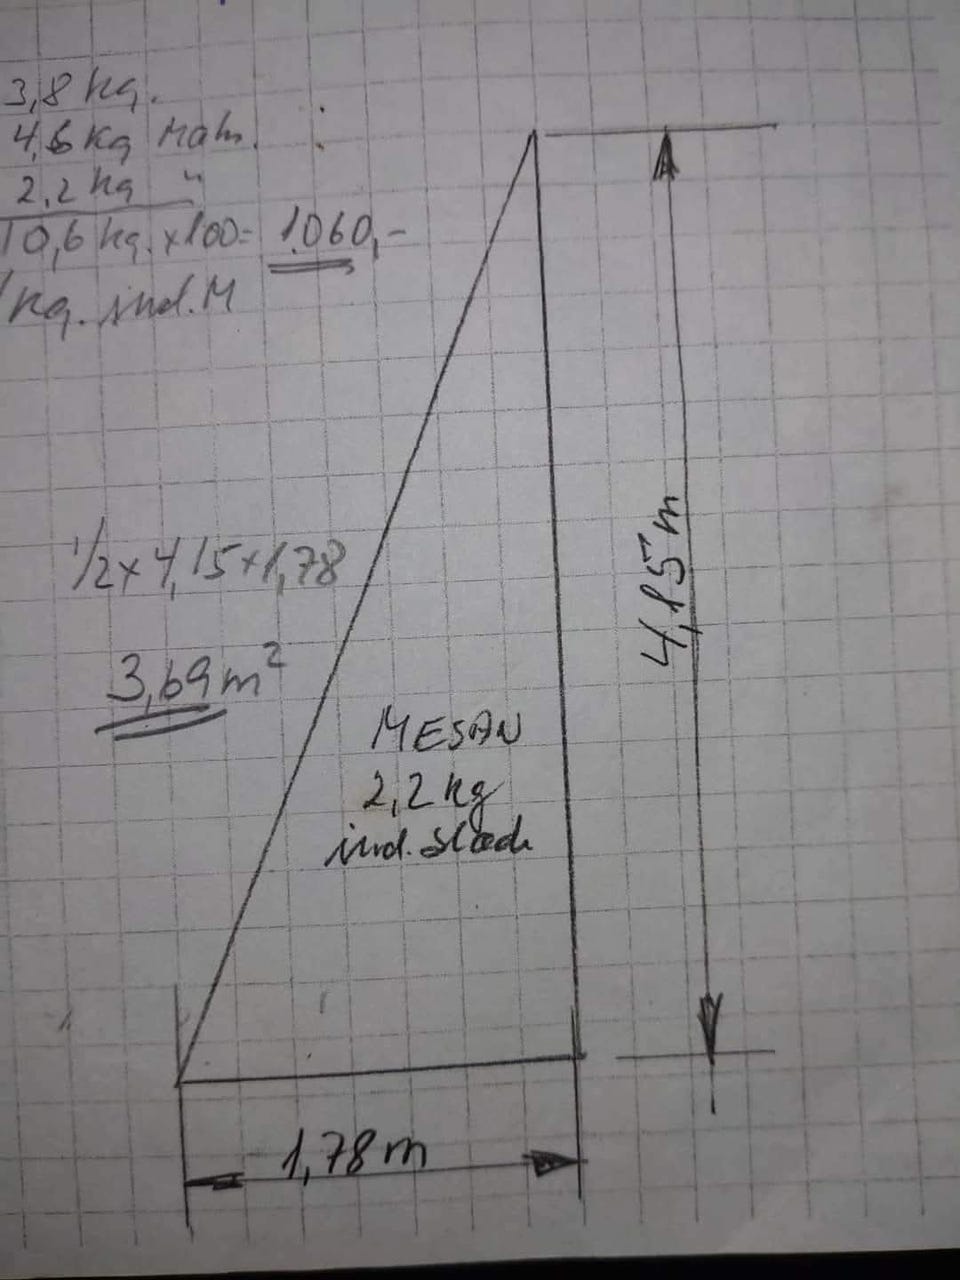 3,8 kg.
4,6 kg Mahn.
2,2 kg "
10,6 kg. x100= 1.060,-
kg. ind. M
1/2 x 4,15 x 1,78
3,69 m²
MESAN
2,2 kg
ind.
4,15 m
1,78 m